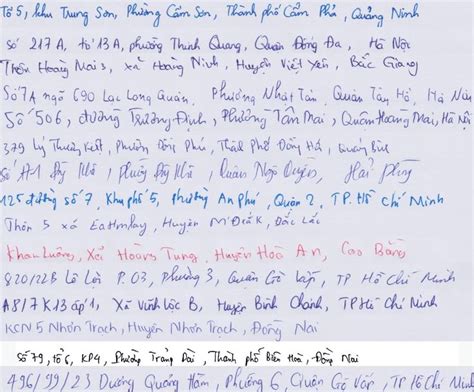 Tổ 5, khu Trung Sơn, Phường Cẩm Sơn, Thành phố Cẩm Phả, Quảng Ninh
Số 217A, tổ 13A, phường Thịnh Quang, Quận Đống Đa, Hà Nội
Thôn Hoàng Mai 3, xã Hoàng Ninh, Huyện Việt Yên, Bắc Giang
Số 7A ngõ 690 Lạc Long Quân, Phường Nhật Tân, Quận Tây Hồ, Hà Nội
Số 506, đường Trương Định, Phường Tân Mai, Quận Hoàng Mai, Hà Nội
379 Lý Thường Kiệt, Phường Đồng Phú, Thành Phố Đồng Hới, Quảng Bình
Số A1 , phường , Quận Ngô Quyền, Hải Phòng
125 đường số 7, Khu phố 5, Phường An Phú, Quận 2, TP. Hồ Chí Minh
Thôn 5 xã EaHmlay, Huyện M'Đrắk, Đắc Lắc
Xã Hoàng Tung, Huyện Hoà An, Cao Bằng
820/22B Lê Lợi P.03, Phường 3, Quận Gò Vấp, TP Hồ Chí Minh
A8/7K13 ấp 1, Xã Vĩnh Lộc B, Huyện Bình Chánh, TP Hồ Chí Minh
KCN 5 Nhơn Trạch, Huyện Nhơn Trạch, Đồng Nai
Số 79, tổ 6, KP4, Phường Trảng Dài, Thành phố Biên Hoà, Đồng Nai
496/99/23 Dương Quảng Hàm, Phường 6, Quận Gò Vấp, TP Hồ Chí Minh